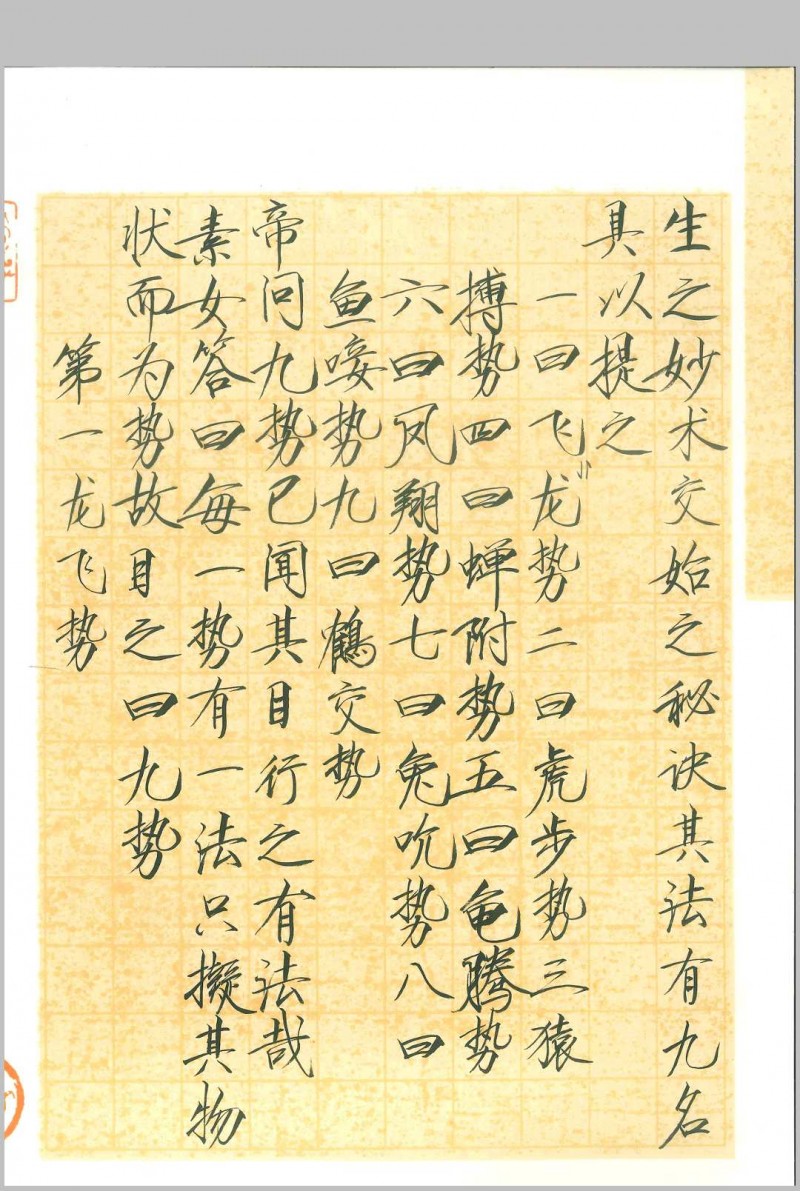 生之妙术交始之秘诀其法有九名
具以提之
一曰飞龙势二曰虎步势三猿
搏势四曰蝉附势五曰龟腾势
六曰凤翔势七曰兔吮势八曰
鱼唼势九曰鹤交势
帝问九势已闻其目行之有法哉
素女答曰每一势有一法只拟其物
状而为势故目之曰九势
第一龙飞势